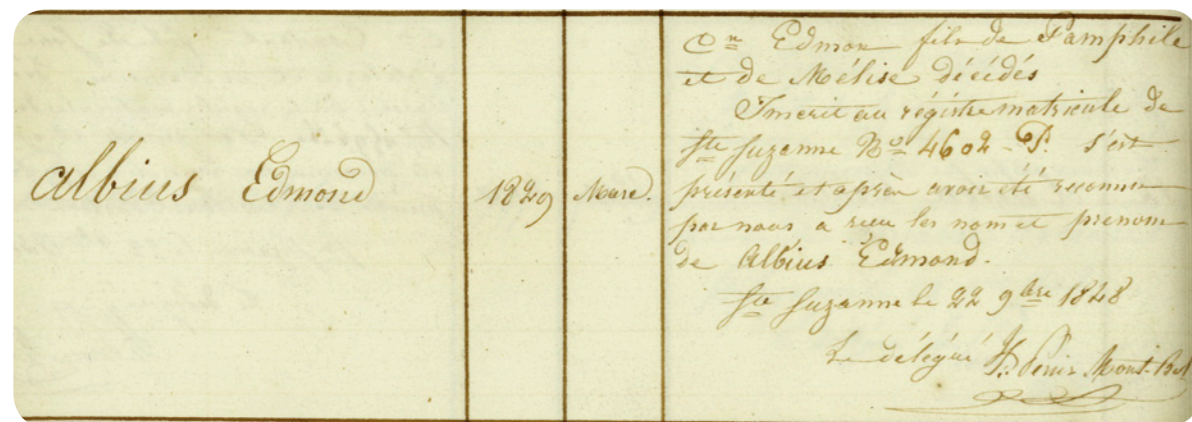 Albius Edmond
1829
Mare.
Cn Edmon fils de Pamphile
et de Mélise décédés
Inscrit au régistre matricule de
Ste Suzanne No 4602 - P. s'est
présenté et après avoir été reconnu
par nous a reçu les nom et prenom
de Albius Edmond.
Ste Suzanne le 22 9bre 1848
Le délégué